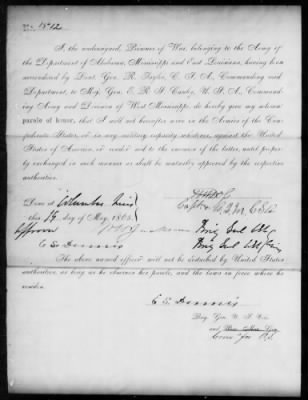 I, the undersigned, Prisoner of War, belonging to the Army of
the Department of Alabama, Mississippi and East Louisiana, having been
surrendered by Lieut. Gen. R. Taylor, C. S. A., Commanding said
Department, to Maj. Gen. E. R. S. Canby, U. S. A., Commanding
Army and Division of West Mississippi, do hereby give my solemn
parole of honor, that I will not hereafter serve in the Armies of the
Confederate States, or in any military capacity whatever, against the United
States of America, or render aid to the enemies of the latter, until properly
exchanged in such manner as shall be mutually approved by the respective
authorities.
Done at Columbus Miss
this 17 day of May, 1865.
Brig Gen
E S Dennis Brig Gen
The above named officer will not be disturbed by United States
authorities, so long as he observes his parole, and the laws in force where he
resides.
E S Dennis
Brig. Gen. U. S. Vols.
and
Com'r for U.S.